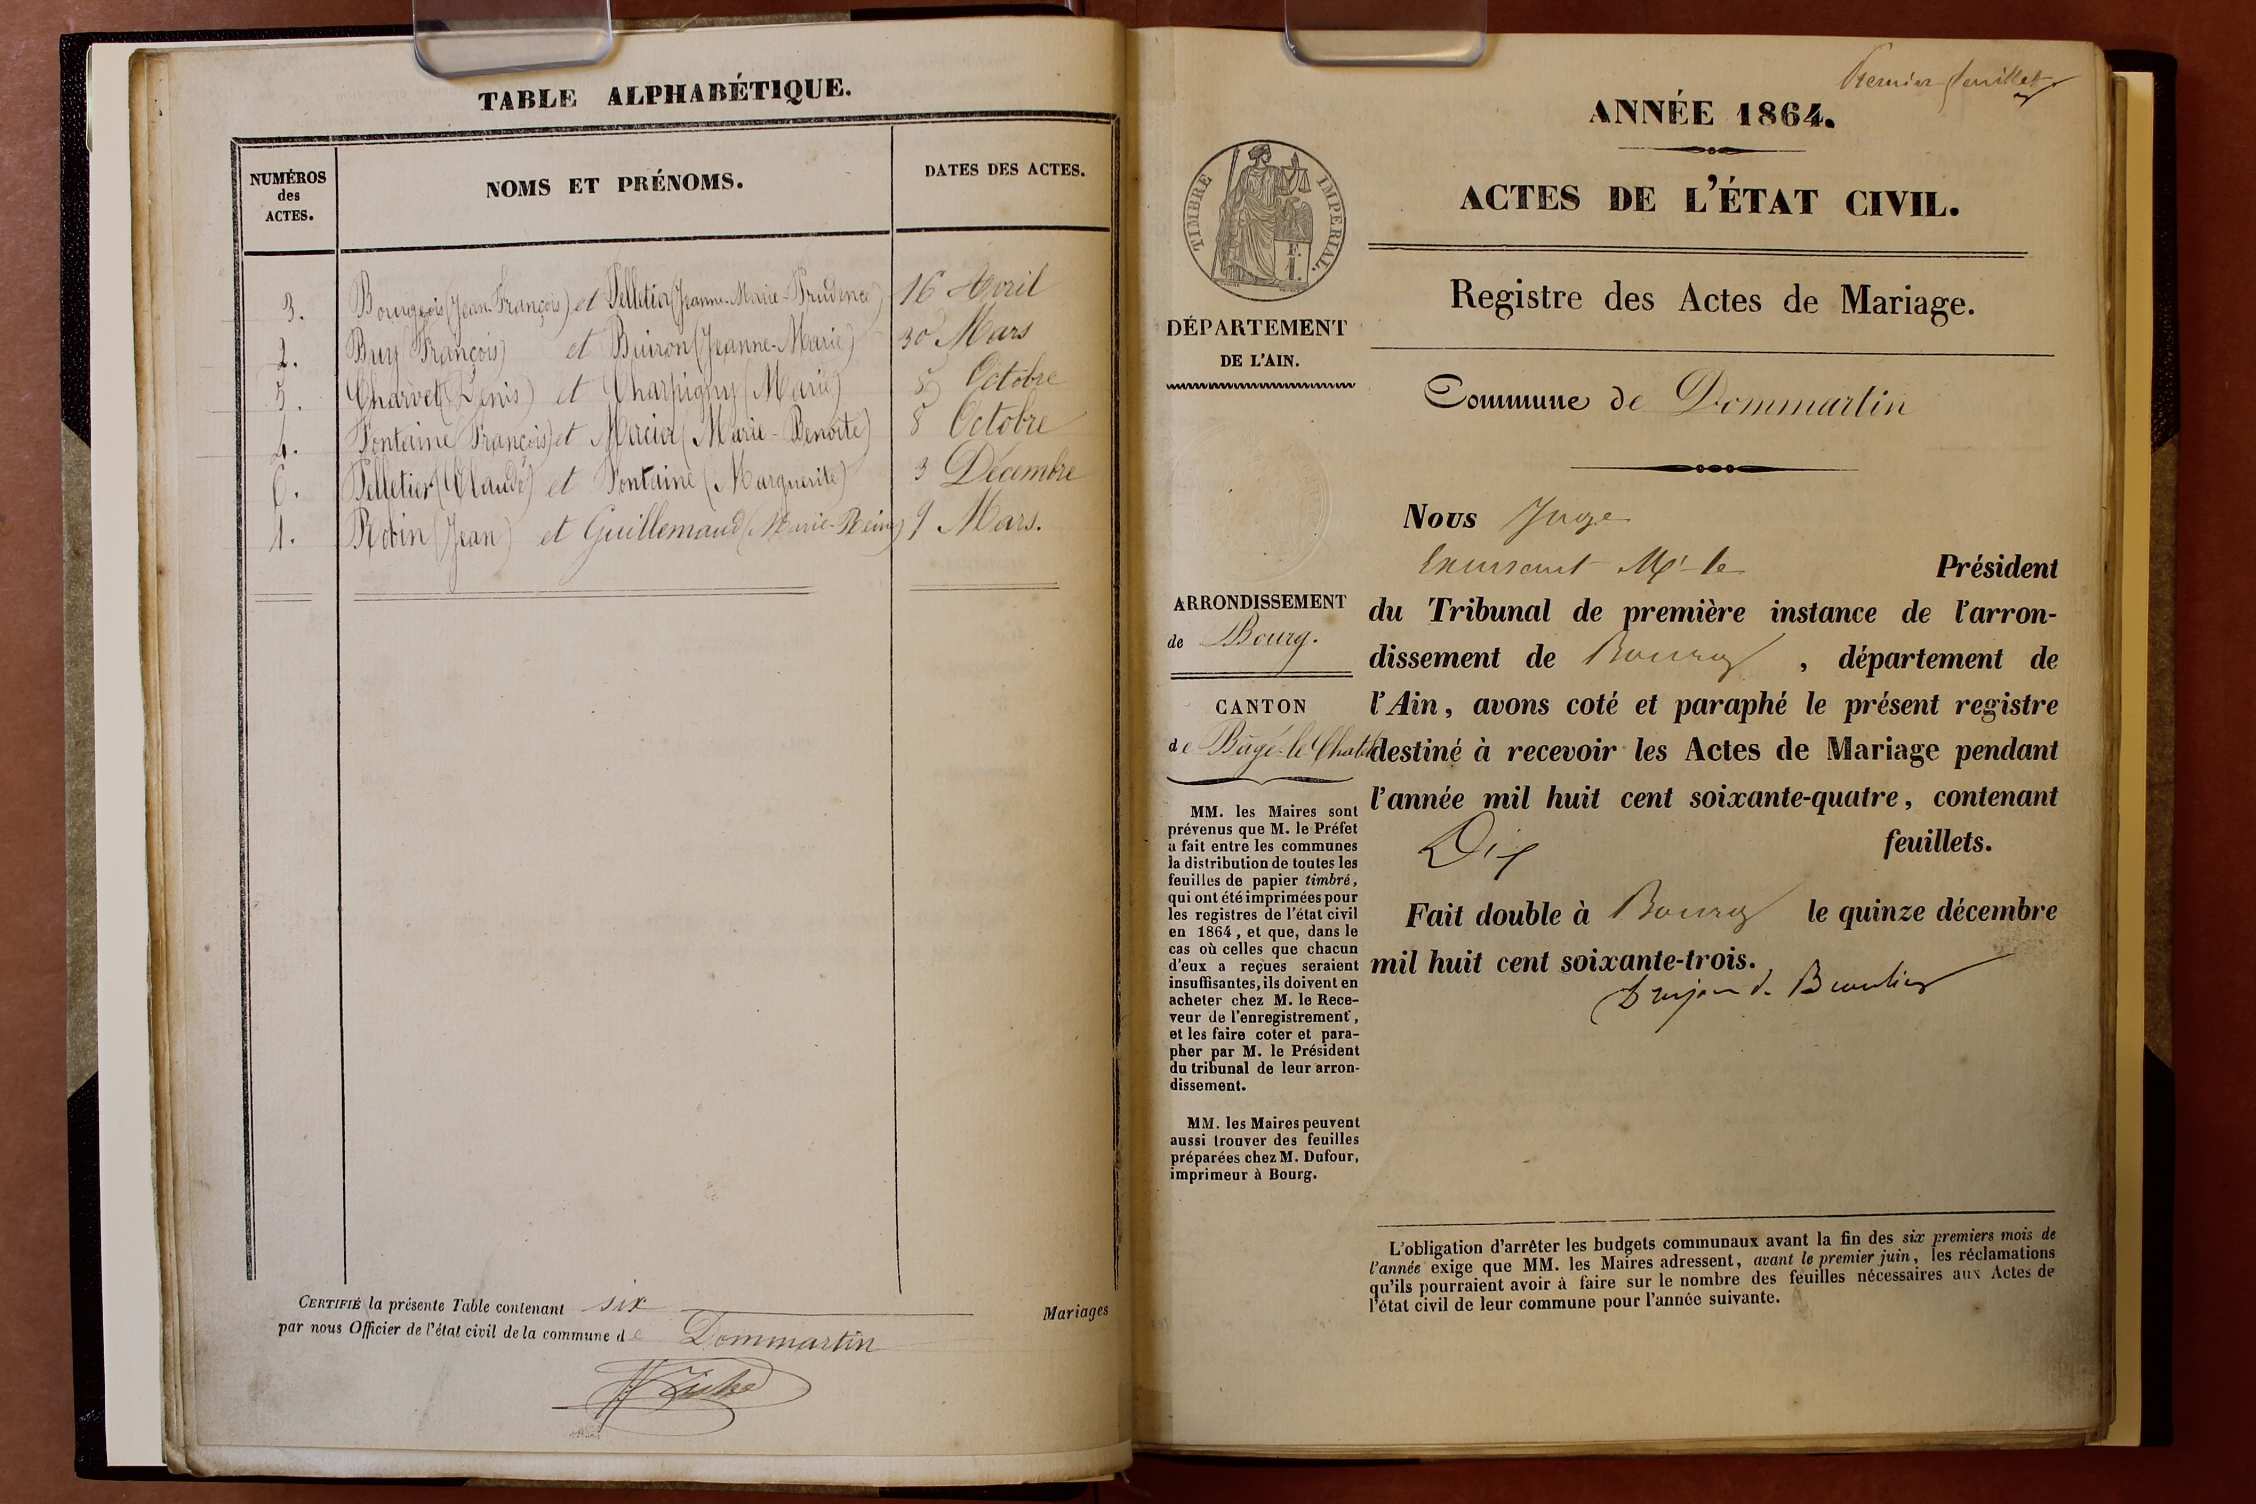 TABLE ALPHABÉTIQUE.
NUMÉROS
des
ACTES.
NOMS ET PRÉNOMS.
DATES DES ACTES.
3. Bourgeois (Jean-François) et Pelletier (Jeanne-Marie-Prudence) 16 Avril
2. Buy François) et Buiron (Jeanne-Marie) 30 Mars
5. Charvet (Denis) et Charpigny (Marie) Octobre
4. Fontaine (François) et Mercier (Marie-Benoite) 8 Octobre
6. Pelletier (Claude) et Fontaine (Marguerite) 3 Décembre
1. Robin (Jean) et Guillemaud (Marie-Reine) 9 Mars.
CERTIFIÉ la présente Table contenant six Mariages
par nous Officier de l'état civil de la commune de Dommartin
Premier feuillet
ANNÉE 1864.
ACTES DE L'ÉTAT CIVIL.
Registre des Actes de Mariage.
TIMBRE IMPERIAL.
E.
I.
DÉPARTEMENT
DE L'AIN.
ARRONDISSEMENT
de Bourg.
CANTON
de Bâgé-le-Chatel
MM. les Maires sont
prévenus que M. le Préfet
a fait entre les communes
la distribution de toutes les
feuilles de papier timbré,
qui ont été imprimées pour
les registres de l'état civil
en 1864, et que, dans le
cas où celles que chacun
d'eux a reçues seraient
insuffisantes, ils doivent en
acheter chez M. le Rece-
veur de l'enregistrement,
et les faire coter et para-
pher par M. le Président
du tribunal de leur arron-
dissement.
MM. les Maires peuvent
aussi trouver des feuilles
préparées chez M. Dufour,
imprimeur à Bourg.
Commune de Dommartin
Nous Juge
Mr le Président
du Tribunal de première instance de l'arron-
dissement de Bourg, département de
l'Ain, avons coté et paraphé le présent registre
destiné à recevoir les Actes de Mariage pendant
l'année mil huit cent soixante-quatre, contenant
Dix feuillets.
Fait double à Bourg le quinze décembre
mil huit cent soixante-trois.
L'obligation d'arrêter les budgets communaux avant la fin des six premiers mois de
l'année exige que MM. les Maires adressent, avant le premier juin, les réclamations
qu'ils pourraient avoir à faire sur le nombre des feuilles nécessaires aux Actes de
l'état civil de leur commune pour l'année suivante.